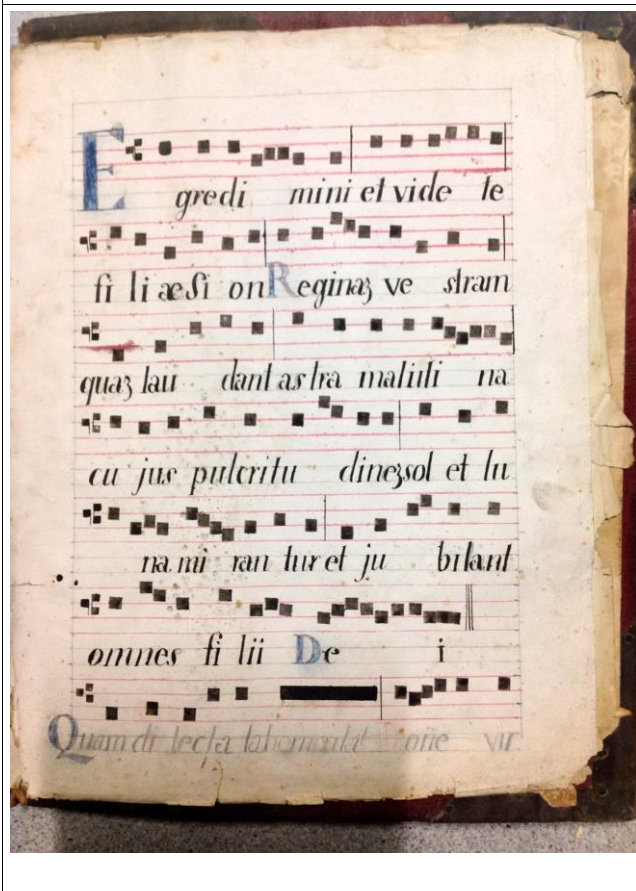 E gredi mini et vide te
fi li ae Si on Reginaʒ ve stram
quaʒ lau dant as tra matuti na
cu jus pulcritu dineʒ sol et lu
na mi ran tur et ju bilant
omnes fi lii De i
Quam di lecta